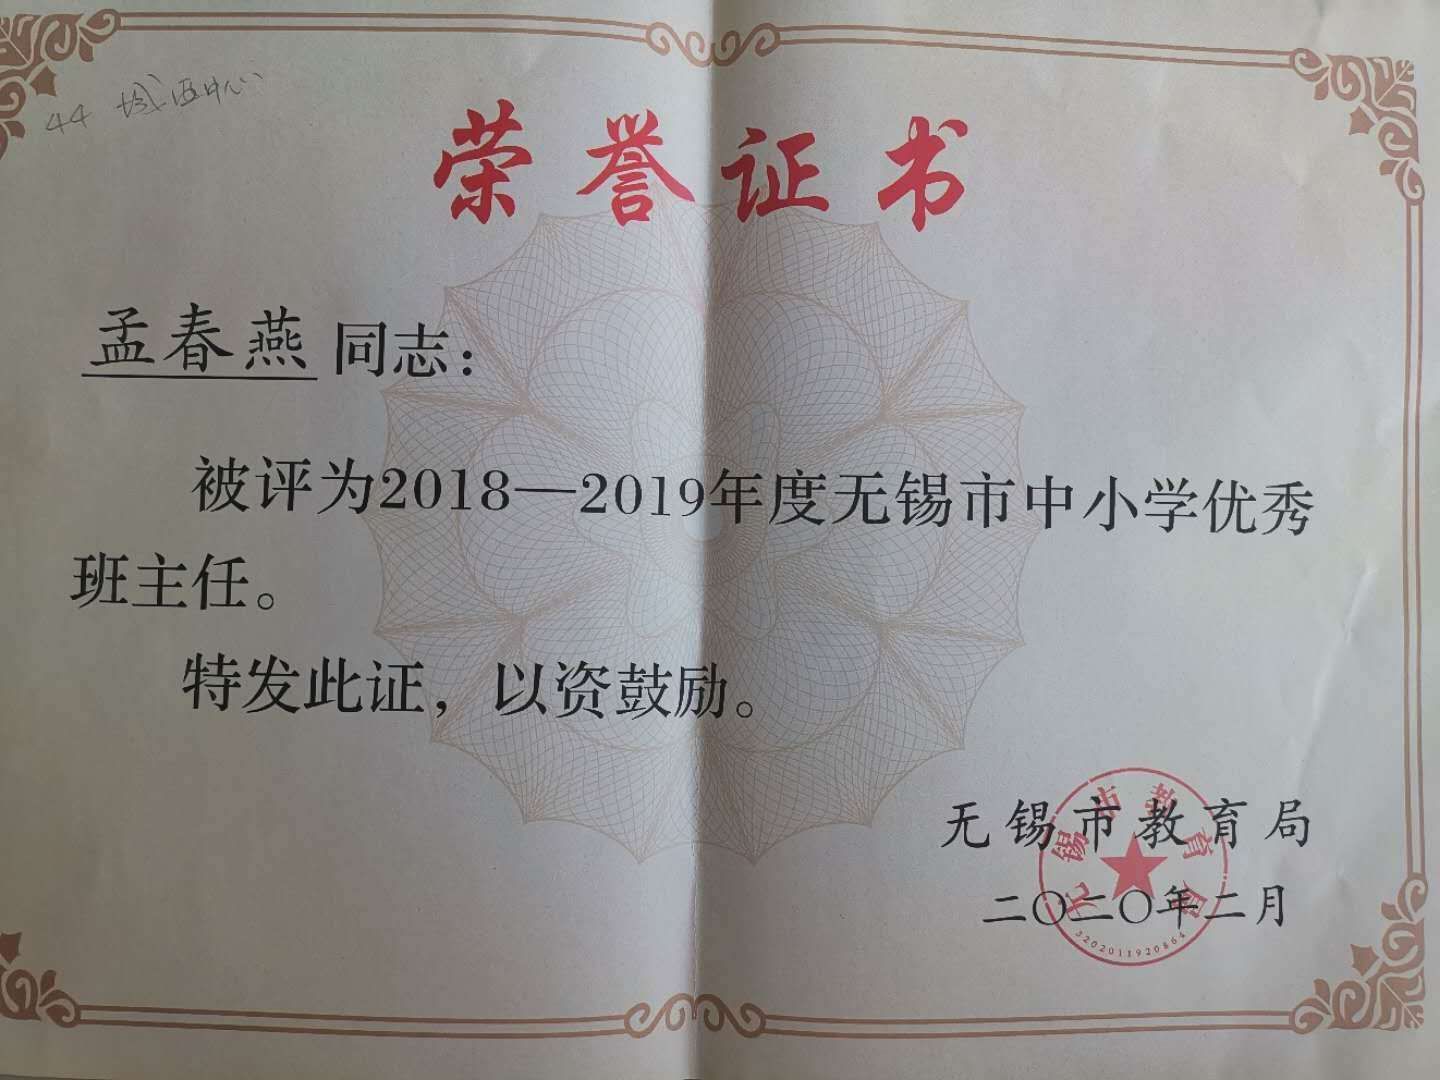 44 城西中心
荣誉证书
孟春燕同志：
被评为2018—2019年度无锡市中小学优秀
班主任。
特发此证，以资鼓励。
无锡市教育局
二〇二〇年二月
无锡市教育局
3202011920864